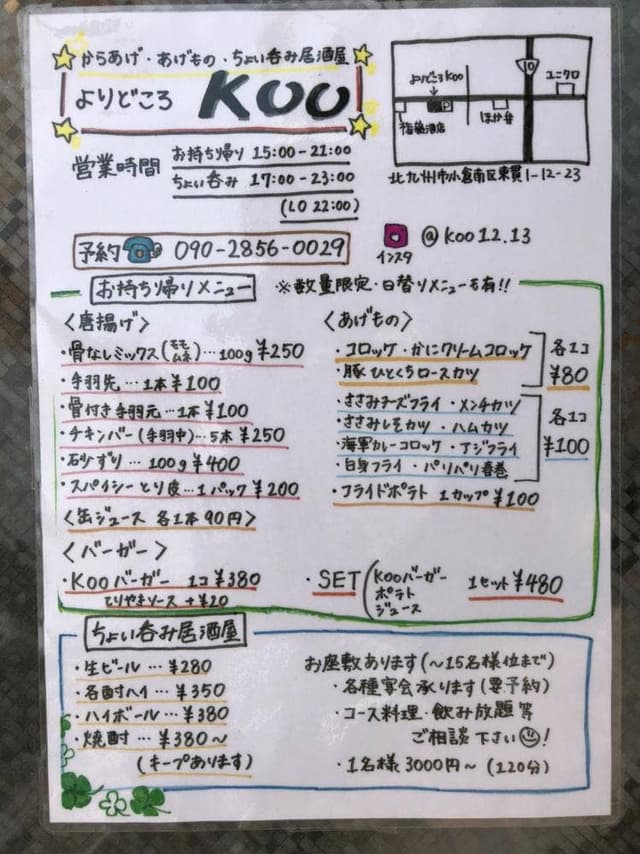 からあげ・あげもの・ちょい呑み居酒屋
よりどころ KOO
営業時間
お持ち帰り 15:00-21:00
ちょい呑み 17:00-23:00
(LO 22:00)
よりどころKOO
10
ユニクロ
酒店
ほか弁
北九州市小倉南区東貫1-12-23
予約 090-2856-0029
インスタ
@koo12.13
お持ち帰りメニュー ※数量限定・日替りメニューも有!!
〈唐揚げ〉
・骨なしミックス(モモ ムネ)…100g ¥250
・手羽先…1本¥100
・骨付き手羽元…1本¥100
・チキンバー(手羽中)…5本¥250
・砂ずり…100g¥400
・スパイシーとり皮…1パック¥200
〈缶ジュース 各1本90円〉
〈あげもの〉
・コロッケ・かにクリームコロッケ
・豚ひとくちロースカツ
各1コ
¥80
・ささみチーズフライ・メンチカツ
・ささみしそカツ・ハムカツ
・海軍カレーコロッケ・アジフライ
・白身フライ・パリパリ春巻
各1コ
¥100
・フライドポテト 1カップ¥100
〈バーガー〉
・KOOバーガー 1コ¥380
とりやまソース+¥20
・SET(KOOバーガー
ポテト
ジュース
1セット¥480
ちょい呑み居酒屋
・生ビール…¥280
・各酎ハイ…¥350
・ハイボール…¥380
・焼酎…¥380～
(キープあります)
お座敷あります(～15名様位まで)
・各種宴会承ります(要予約)
・コース料理・飲み放題等
ご相談下さい!
・1名様3000円～(120分)